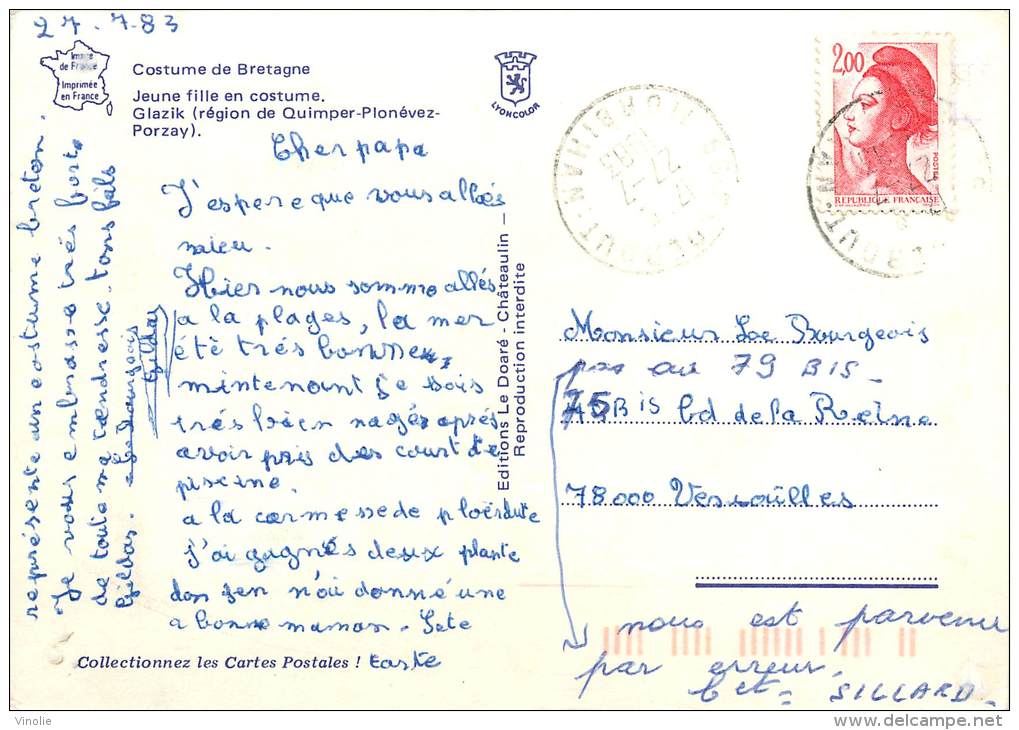 27.7.83
Image
de France
Imprimée
en France
Costume de Bretagne
Jeune fille en costume.
Glazik (région de Quimper-Plonévez-
Porzay).
LYONCOLOR
Cher papa
J'espere que vous allées
mieu.
Hier nous somme allés
a la plages, la mer
étè trés bonne,
mintenant je sais
trés bien nagés aprés
avoir pris des court de
piscine.
a la carmesse de ploerdute
j'ai gagnés deux plante
don jen n'ai donné une
a bonne maman. Sete
carte
représente un costume breton.
Je vous embrasse trés fort
de toute ma tendresse. tons fils
Gildas. Le Bourgeois
Gildas
Collectionnez les Cartes Postales !
Editions Le Doaré - Châteaulin —
Reproduction interdite
2,00
POSTES
REPUBLIQUE FRANÇAISE
MORBIHAN
27-7
1983
Monsieur Le Bourgeois
pas au 79 BIS -
75 BIS bd de la Reine
78000 Versailles
nous est parvenu
par erreur.
SILLARD -
Vinolie
www.delcampe.net